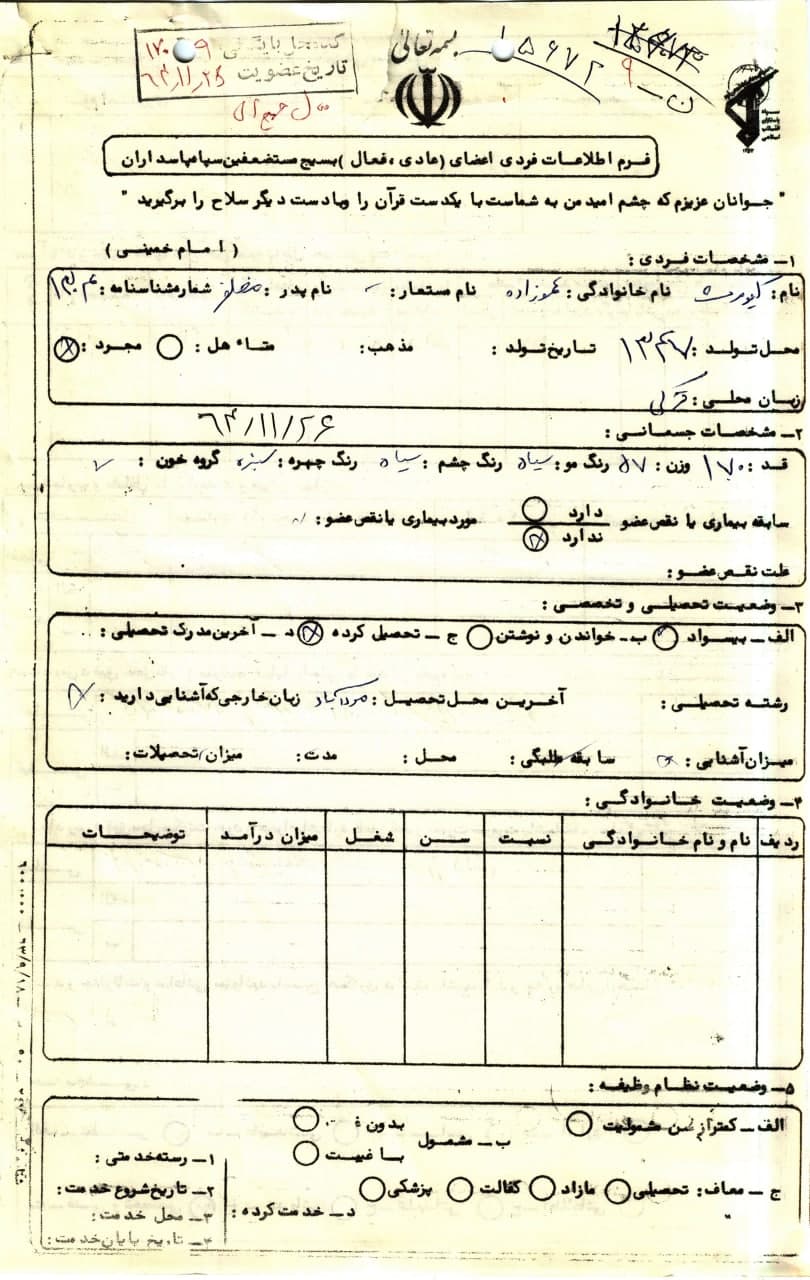 بسمه تعالی
کد محل بایگانی ۱۷۰۰۹
تاریخ عضویت ۶۴/۱۱/۲۶
۱۵۶۷۲
ن - ۹
فرم اطلاعات فردی اعضای (عادی، فعال) بسیج مستضعفین سپاه پاسداران
" جوانان عزیزم که چشم امید من به شماست با یکدست قرآن را و با دست دیگر سلاح را برگیرید "
( امام خمینی )
۱- مشخصات فردی :
نام : کیومرث نام خانوادگی : عموزاده نام مستعار : - نام پدر : شماره شناسنامه :
محل تولد : ۱۳۴۷ تاریخ تولد : مذهب : متاهل : مجرد :
زبان محلی : ترکی
۶۴/۱۱/۲۶
۲- مشخصات جسمانی :
قد : ۱۷۰ وزن : ۵۷ رنگ مو : سیاه رنگ چشم : سیاه رنگ چهره : سبزه گروه خون :
سابقه بیماری یا نقص عضو دارد ندارد مورد بیماری یا نقص عضو :
علت نقص عضو :
۳- وضعیت تحصیلی و تخصصی :
الف - بیسواد ب- خواندن و نوشتن ج - تحصیل کرده د - آخرین مدرک تحصیلی :
رشته تحصیلی : آخرین محل تحصیل : زبان خارجی که آشنایی دارید :
میزان آشنایی : سابقه طلبگی : محل : مدت : میزان تحصیلات :
۴- وضعیت خانوادگی :
ردیف نام و نام خانوادگی نسبت سن شغل میزان درآمد توضیحات
۵- وضعیت نظام وظیفه :
الف - کمتر از سن مشمولیت ب - مشمول بدون غ با غیبت
ج - معاف : تحصیلی مازاد کفالت پزشکی د - خدمت کرده :
۱- رسته خدمتی :
۲- تاریخ شروع خدمت :
۳- محل خدمت :
۴- تاریخ پایان خدمت :